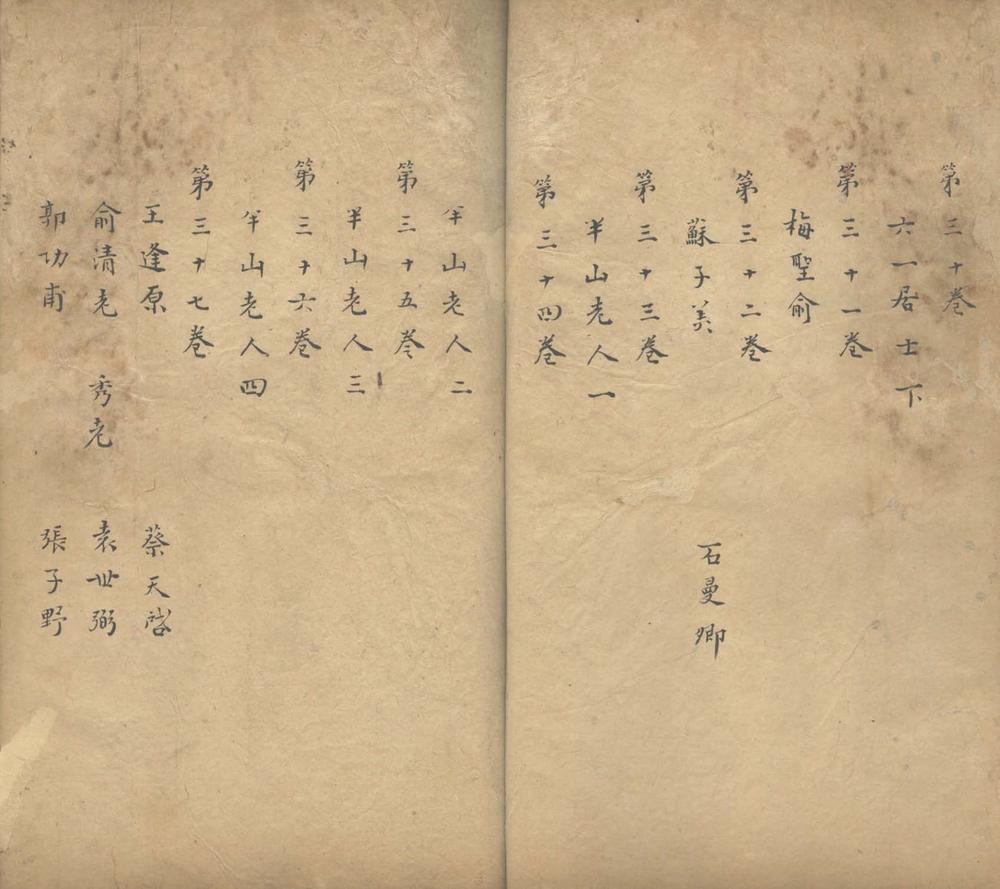 第三十卷
六一居士下
第三十一卷
梅聖俞
第三十二卷
蘇子美　石曼卿
第三十三卷
半山老人一
第三十四卷
半山老人二
第三十五卷
半山老人三
第三十六卷
半山老人四
第三十七卷
王逢原　蔡天啓
俞清老　秀老　袁世弼
郭功甫　張子野